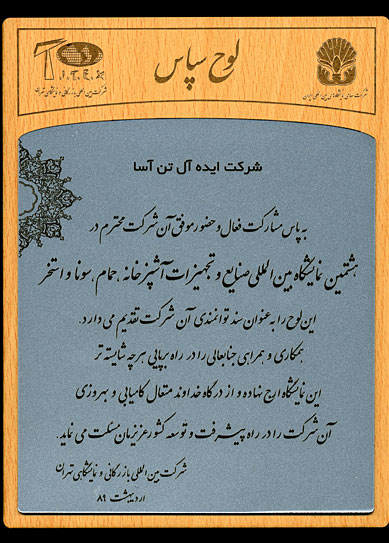 لوح سپاس
شرکت سهامی نمایشگاههای بین المللی ایران
شرکت بین المللی بازرگانی و نمایشگاهی تهران
شرکت ایده آل تن آسا
به پاس مشارکت فعال و حضور موفق آن شرکت محترم در
هشتمین نمایشگاه بین المللی صنایع و تجهیزات آشپزخانه، حمام، سونا و استخر
این لوح را به عنوان سند توانمندی آن شرکت تقدیم می دارد.
همکاری و همراهی جنابعالی را در راه برپایی هرچه شایسته تر
این نمایشگاه ارج نهاده و از درگاه خداوند متعال کامیابی و بهروزی
آن شرکت را در راه پیشرفت و توسعه کشور عزیزمان مسئلت می نماید.
شرکت بین المللی بازرگانی و نمایشگاهی تهران
اردیبهشت ۸۹